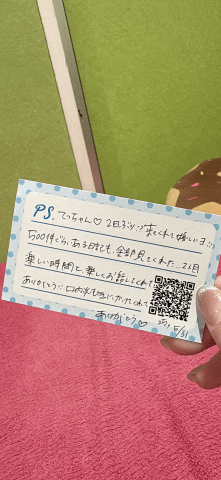 PS. てっちゃん♡ 2日ぶり!? 来てくれて嬉しいヨ!!
500件ぐらいある日記も、全部見てくれた...2日
楽しい時間と、楽しくお話ししてくれて
ありがとう!! 口内炎も気にかけてくれて
ありがとう♡
5/31